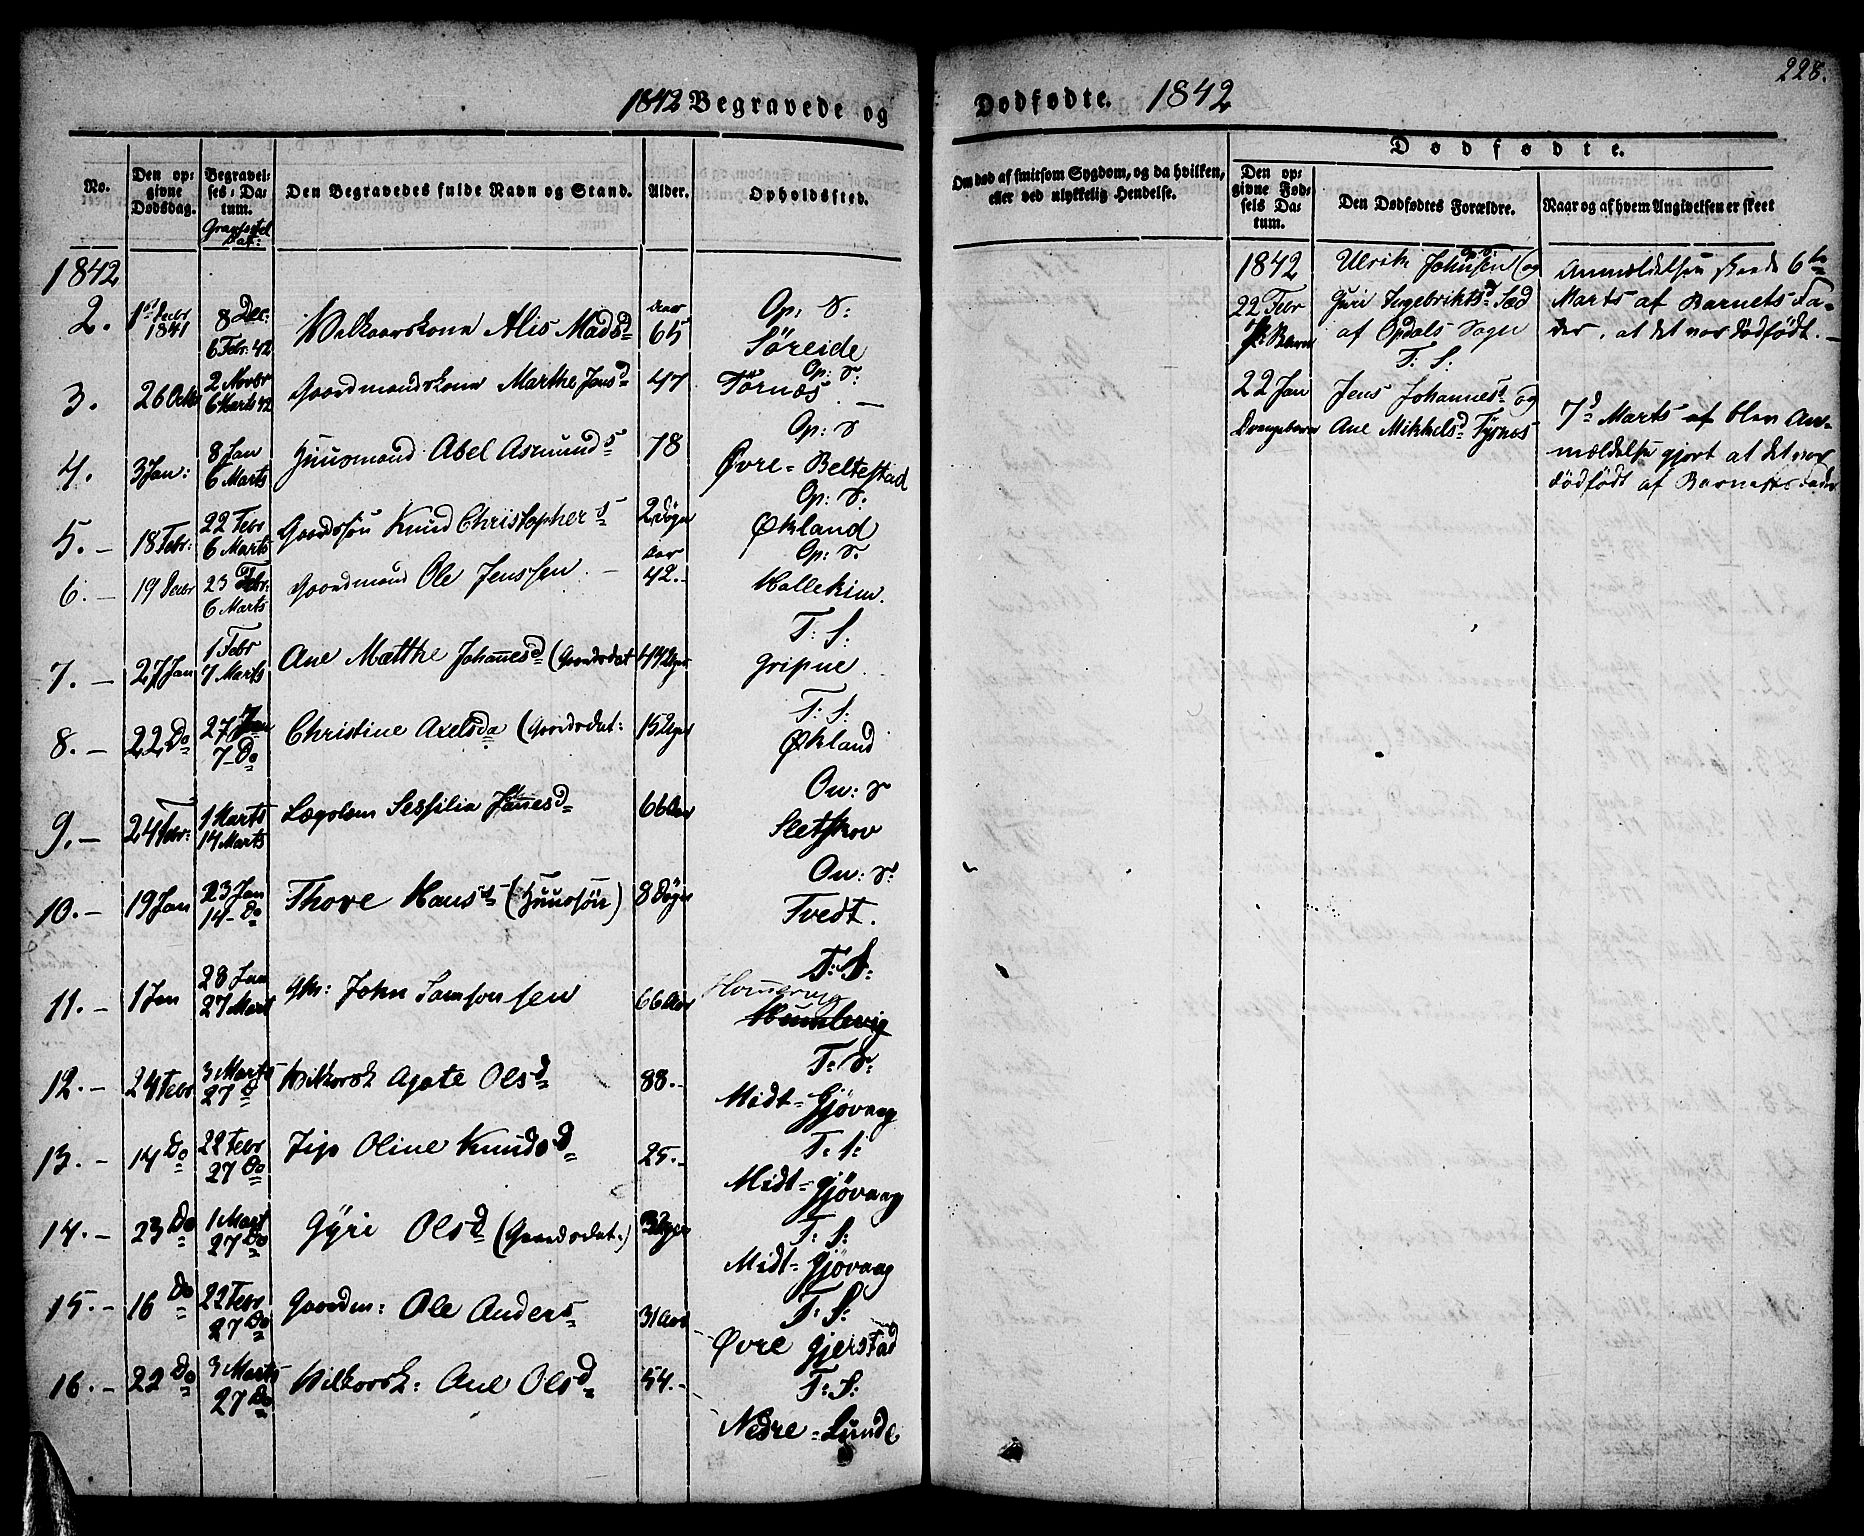 228.
1842 Begravede og Dødfødte. 1842
No.
Den opgivne Dødsdag.
Begravelses-Datum.
Den Begravedes fulde Navn og Stand.
Alder.
Opholdssted.
Om død af smitsom Sygdom, og da hvilken, eller ved ulykkelig Hendelse.
Dødfødte.
Den opgivne Fødsels Datum.
Den Dødfødtes Forældre.
Naar og af hvem Angivelsen er skeet
1842
2. 1st Decbr 1841 8 Dec: 6 Febr. 42 Vilkaarskone Alis Madsd 65 Aar Op: S: Søreide
3. 26 Octb 2 Novbr 6 Marts 42 Gaardmandskone Marthe Jensd 47 Op: S: Tørnæs
4. 3 Jan: 8 Jan 6 Marts Huusmand Abel Asmunds 78 Op: S Øvre-Beltestad
5. - 18 Febr: 22 Febr 6 Marts Gaardssøn Knud Christophers 2 Døgn Op: S: Økland
6. - 19 Febr 23 Febr: 6 Marts Gaardmand Ole Jenssen - 42.- Aar Op: S. Hallekim.
7. - 27 Jan 1 Febr 7 Marts Ane Matthe Johannesd (Gaardsdat T: S: Gripne
8. - 22 Do 27 Jan 7 - Do Christine Axelsda (Gaardsdat: 15 Uger T: S: Økland
9. - 24 Febr: 1 Marts 14 Marts Lægdslem Sessilia 66 Aar On: S Sletskov
10. - 19 Jan 23 Jan 14 - Do Thore Hans (Huussøn) 8 Døgn On: S: Tvedt.
11. - 1 Jan 28 Jan 27 Mart Gkr: John Samsonsen 66 Aar T: S: Humlevig
12. - 24 Febr 3 Marts 27 Do Vilkorsk Agate Olsd 88.- T: S: Midt-Gjøvaag
13. - 14 Do 22 Febr 27 Do Pige Oline Knudsd 25.- T: S: Midt-Gjøvaag
14. - 23 Do 1 Mart 27 Do Gyri Olsd (Gaardsdat.) T: S: Midt-Gjøvaag
15. - 16 Do 22 Febr 27 Do Gaardm: Ole Anders 31 Aar T: S: Øvre Gjerstad
16. - 22 Do 3 Marts 27 Do Vilkorsk: Ane Olsd 54.- T: S: Nedre-Lunde
1842 22 Febr Ulrik Johnsen (og Guri Ingebriktsd af Opdals Sogn
Anmældelsen skeede 6te Marts af Barnets Fader, at det var dødfødt. -
T: S:
22 Jan Drengebarn Jens Johannes og Ane Mikkelsd Tyrnes
7d Marts blev Anmældelse gjort at det var dødfødt af Barnets Fader